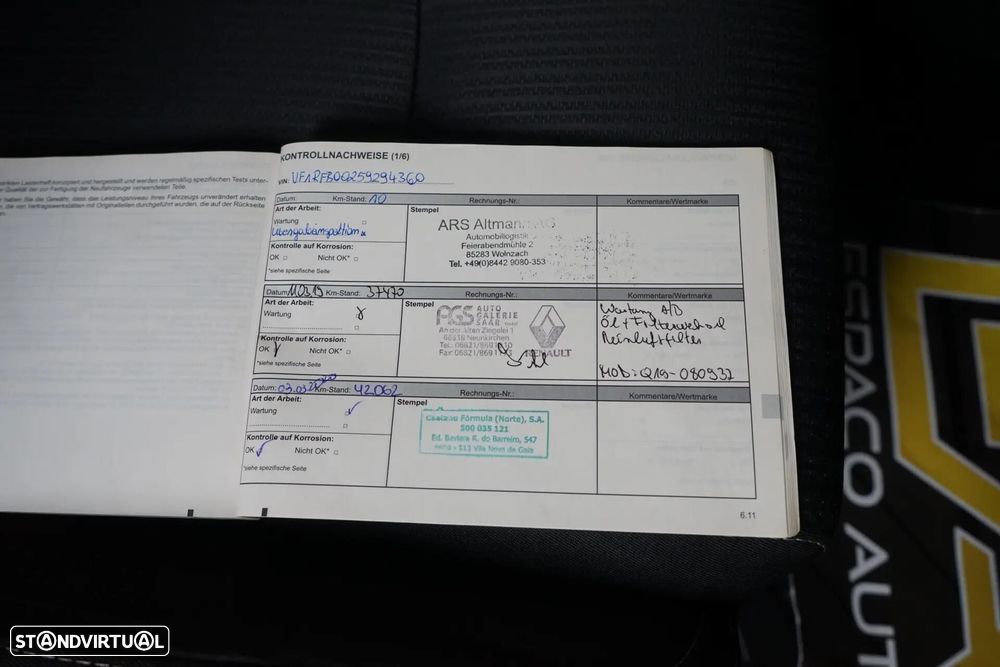 arkten Lastenheft konzipiert und hergestellt und werden regelmäßig spezifischen Tests unter-
er Qualität der zur Fertigung der Neufahrzeuge verwendeten Teile.
r haben Sie die Gewähr, dass das Leistungsniveau Ihres Fahrzeugs unverändert erhalten
n, die von Vertragswerkstätten mit Originalteilen durchgeführt wurden, die auf der Rückseite
KONTROLLNACHWEISE (1/6)
VIN: VF1RFB00259294360
Datum: Km-Stand: 10 Rechnungs-Nr.: Kommentare/Wertmarke
Art der Arbeit:
Wartung
Übergabeinspektion
Kontrolle auf Korrosion:
OK Nicht OK*
*siehe spezifische Seite
Stempel
ARS Altmann AG
Automobillogistik
Feierabendmühle 2
85283 Wolnzach
Tel. +49(0)8442 9080-353
Datum: 110319 Km-Stand: 37470 Rechnungs-Nr.: Kommentare/Wertmarke
Art der Arbeit:
Wartung
Kontrolle auf Korrosion:
OK Nicht OK*
*siehe spezifische Seite
Stempel
AGS AUTO
GALERIE
SAAR GmbH
An der Alten Ziegelei 1
66538 Neunkirchen
Tel.: 06821/8691
Fax: 06821/8691
RENAULT
Wartung A/B
Öl + Filterwechsel
Reinluftfilter
MOD: Q19-080937
Datum: 03.03.2020 Km-Stand: 42062 Rechnungs-Nr.: Kommentare/Wertmarke
Art der Arbeit:
Wartung
Kontrolle auf Korrosion:
OK Nicht OK*
*siehe spezifische Seite
Stempel
Caetano Fórmula (Norte), S.A.
500 035 121
Ed. Baviera R. do Barreiro, 547
- 513 Vila Nova de Gaia
6.11
ESPAÇO AUT
STANDVIRTUAL